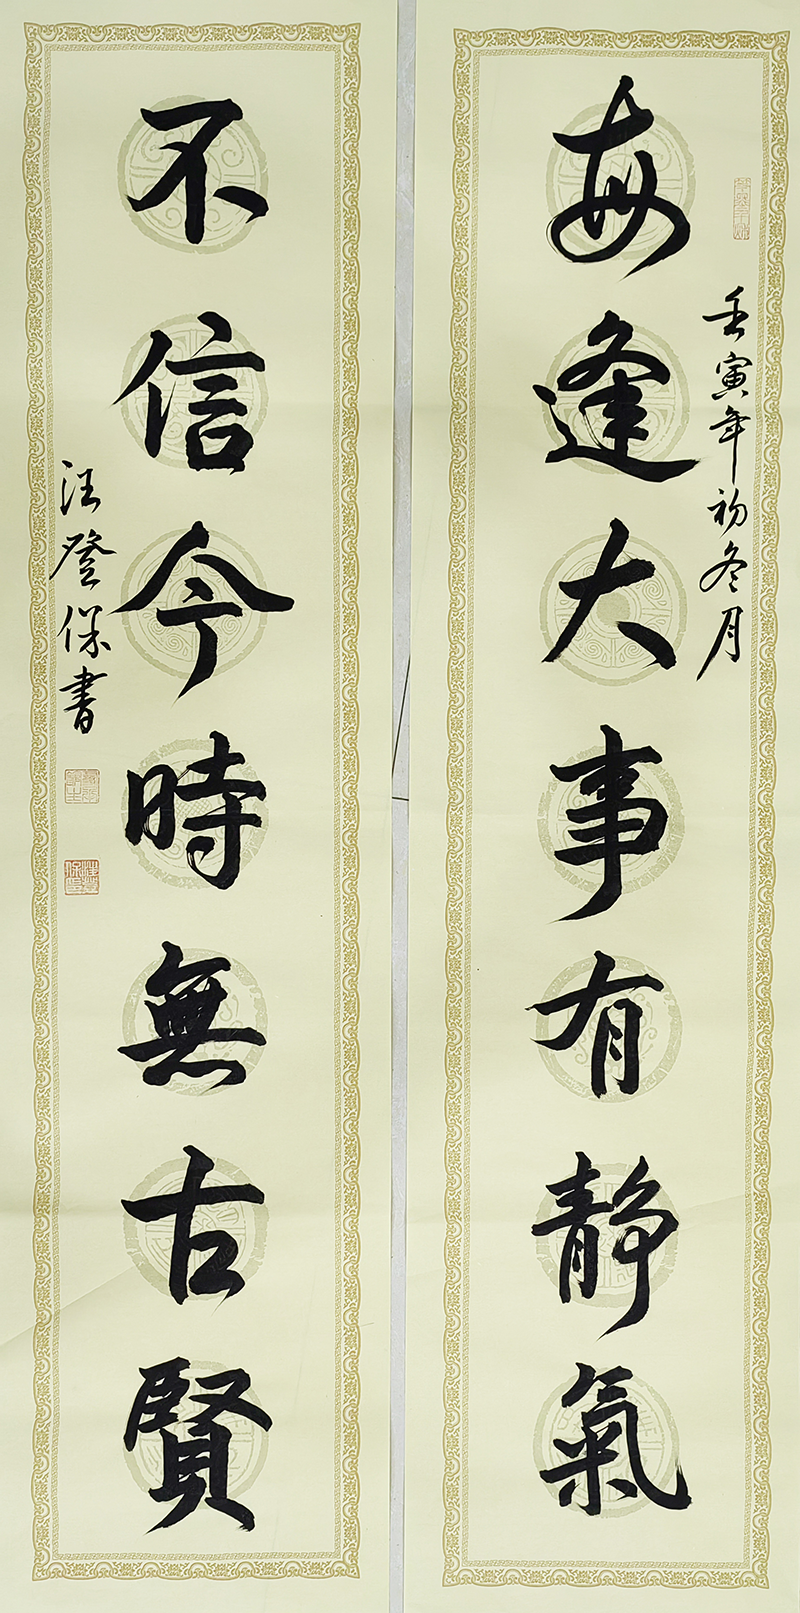 每逢大事有靜氣
壬寅年初冬月
不信今時無古賢
汪登保書
汪登保印